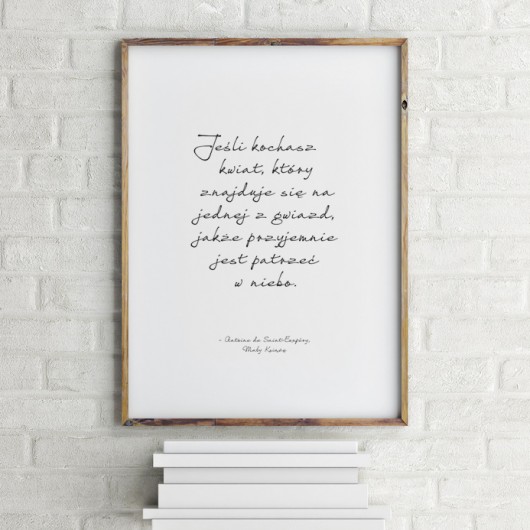 Jeśli kochasz
kwiat, który
znajduje się na
jednej z gwiazd,
jakże przyjemnie
jest patrzeć
w niebo.
- Antoine de Saint-Exupéry,
Mały Książę